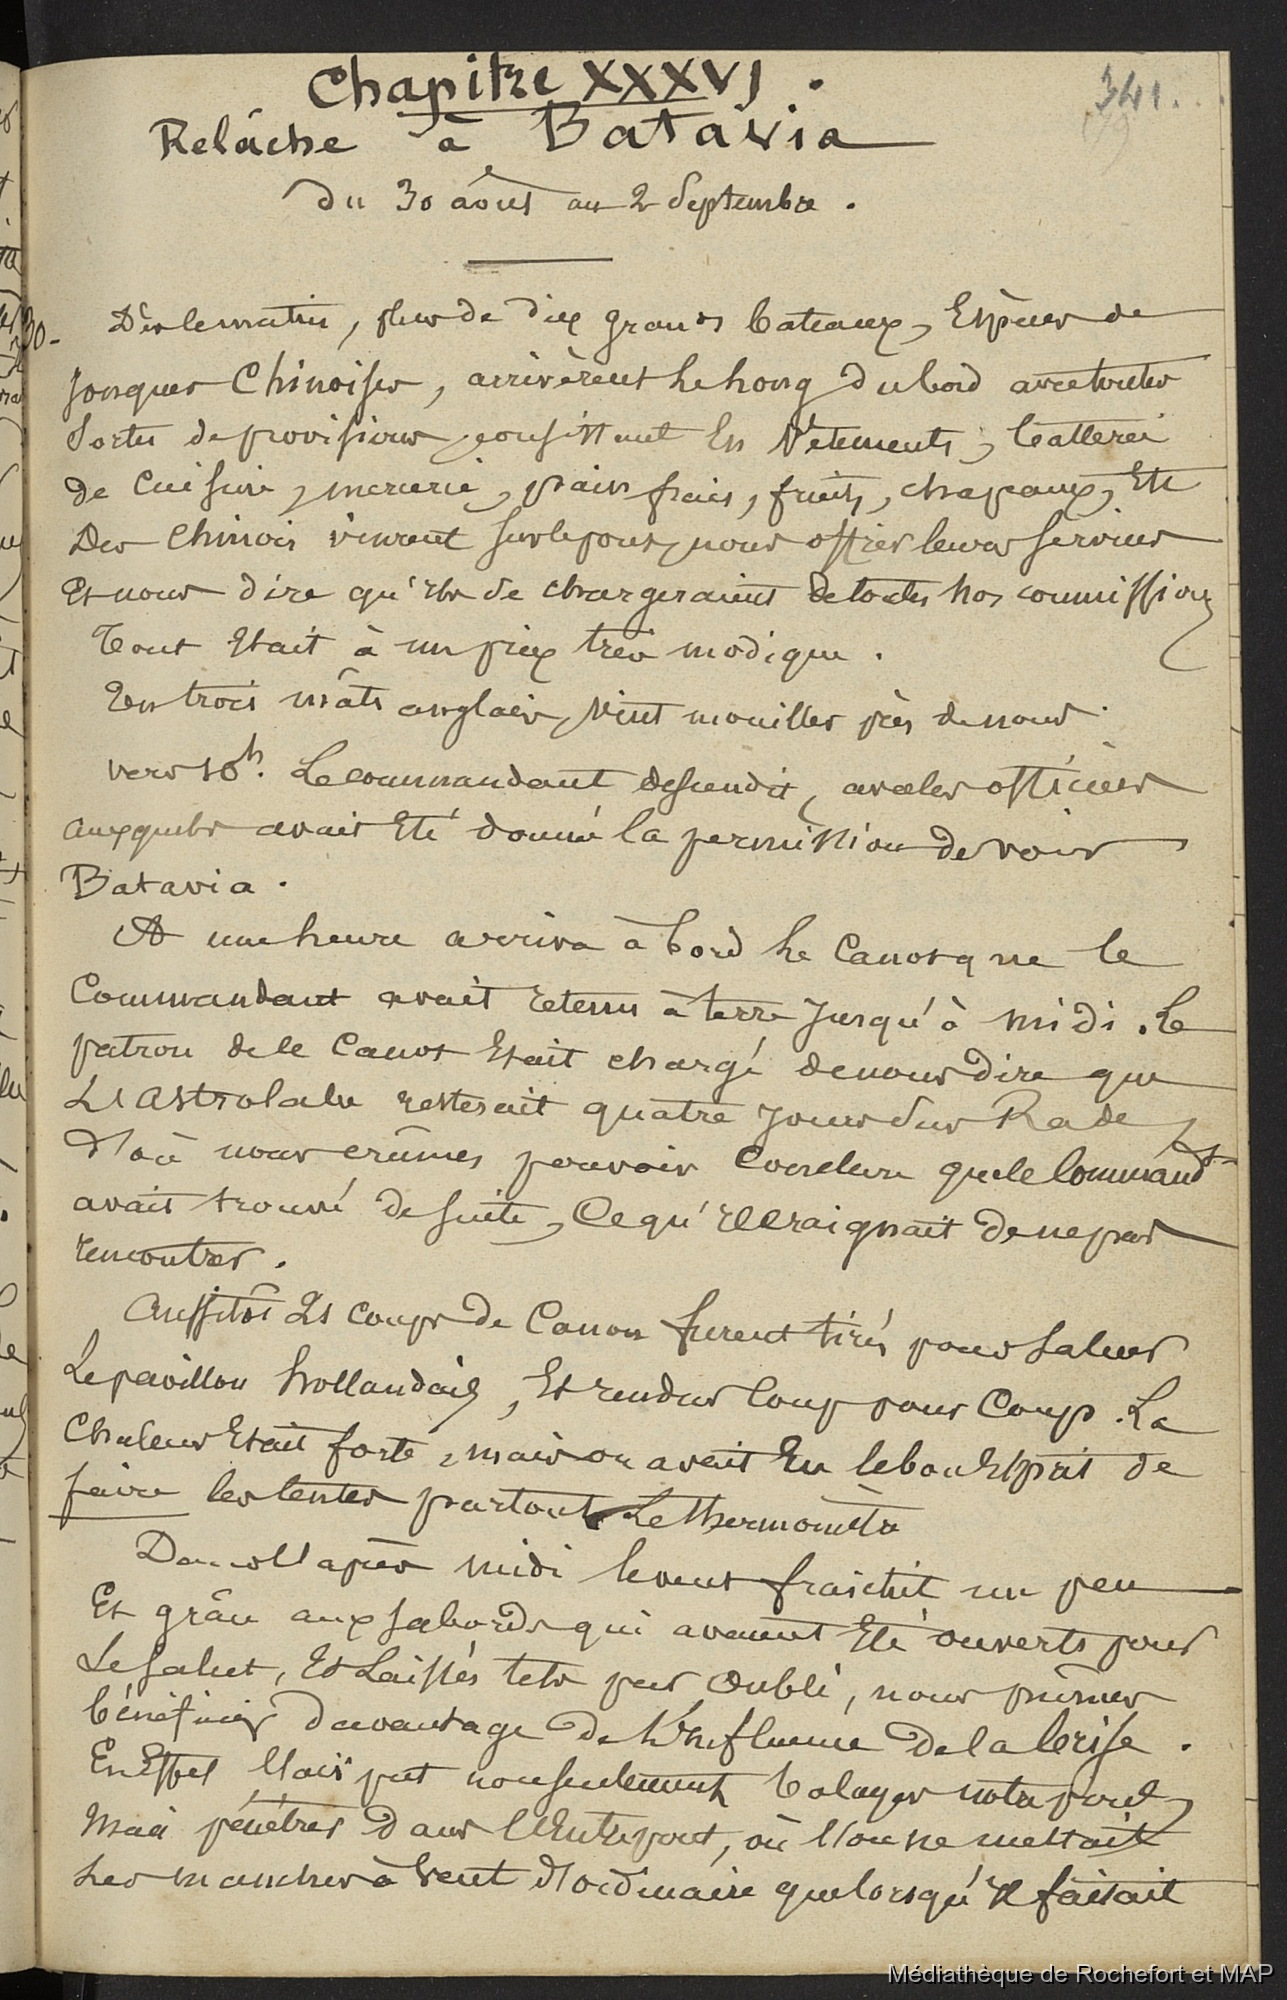 Chapitre XXXVI.
341...
Relâche à Batavia
du 30 août au 2 Septembre.
30-
Dès le matin, plus de dix grands bateaux, Espèces de
jonques Chinoises, arrivèrent le long du bord avec toutes
Sortes de provisions, consistant En Vêtements, batterie
de Cuisine, mercerie, pain frais, fruits, chapeaux, Etc
Des Chinois vinrent sur le pont, nous offrir leurs services
Et nous dire qu'ils se chargeraient de toutes nos commissions
Tout Etait à un prix très modique.
Un trois mâts anglais, vint mouiller près de nous.
vers 10h. Le commandant descendit, avec les officiers
auxquels avait Eté donné la permission de voir
Batavia.
A une heure arriva à bord le Canot que le
Commandant avait retenu à terre jusqu'à midi. Le
patron de le Canot Etait chargé de nous dire que
L'Astrolabe resterait quatre jours sur Rade,
d'où nous crûmes pouvoir Conclure que le Commandt
avait trouvé de suite, Ce qu'Il craignait de ne pas
rencontrer.
Aussitôt 21 coups de Canon furent tirés pour saluer
Le pavillon hollandais, Et rendus Coup pour Coup. La
Chaleur Etait forte, mais on avait Eu le bon Esprit de
faire les tentes partout Le thermomètre
Dans l'après midi le vent fraichit un peu
Et grâce aux sabords qui avaient Eté ouverts pour
Le Salut, Et Laissés tels par Oubli, nous pûmes
bénéficier davantage de l'Influence de la brise.
En Effet l'air put non seulement balayer notre pont,
Mais pénétrer dans l'Entrepont, où l'on ne mettait
les manches à vent d'ordinaire que lorsqu'Il faisait
Médiathèque de Rochefort et MAP